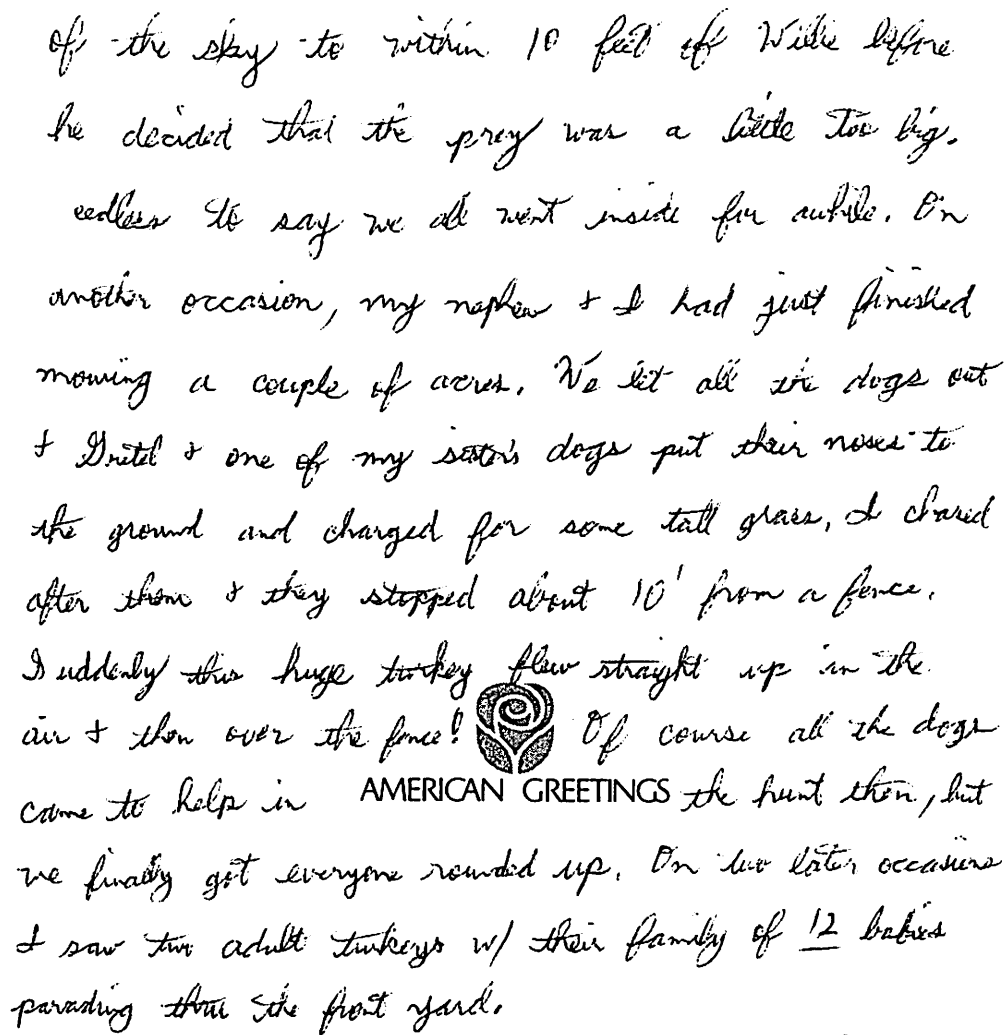 of the sky to within 10 feet of Willie before
he decided that the prey was a little too big.
eedless to say we all went inside for awhile. On
another occasion, my nephew & I had just finished
mowing a couple of acres. We let all the dogs out
& Gretel & one of my sister's dogs put their noses to
the ground and charged for some tall grass. I chased
after them & they stopped about 10' from a fence.
Suddenly this huge turkey flew straight up in the
air & then over the fence! Of course all the dogs
came to help in AMERICAN GREETINGS the hunt then, but
we finally got everyone rounded up. On two later occasions
I saw two adult turkeys w/ their family of 12 babies
parading thru the front yard.